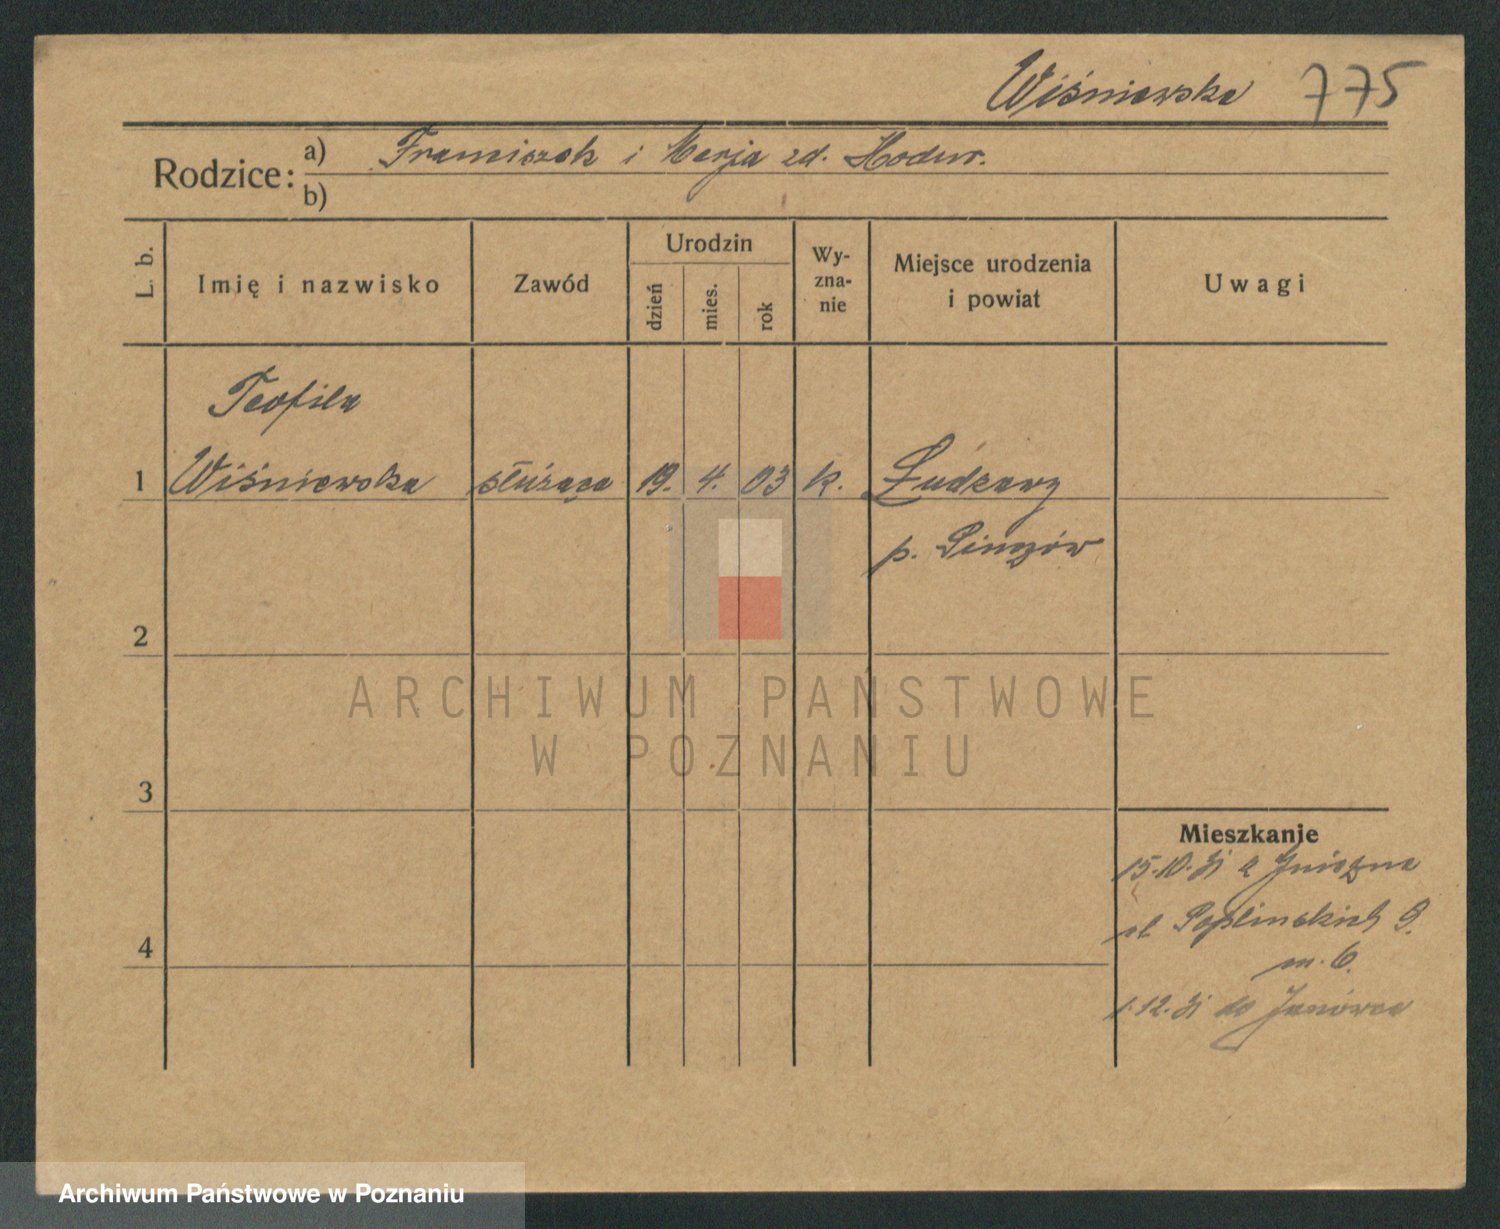 Wiśniewska 775
Rodzice: a) Franciszek i Marja zd. Hodur.
b)
L. b.
Imię i nazwisko
Zawód
Urodzin
dzień
mies.
rok
Wy-
zna-
nie
Miejsce urodzenia
i powiat
Uwagi
Teofila
1 Wiśniewska służąca 19. 4. 03 k.
p. Pinczów
2
ARCHIWUM PAŃSTWOWE
W POZNANIU
3
Mieszkanie
15.10.31 z Gniezna
ul. Poplinskich 9.
m. 6.
4
1.12.31 do Janówca
Archiwum Państwowe w Poznaniu